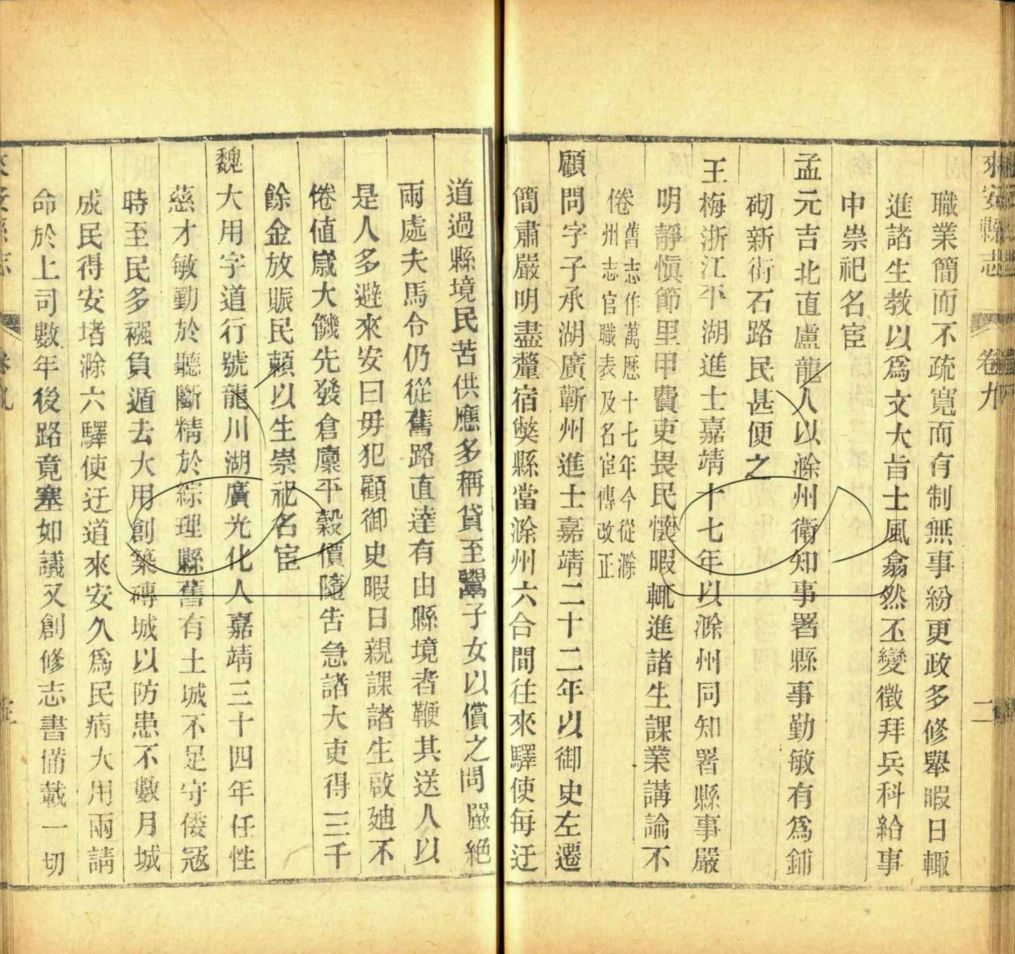 來安縣志
卷九
二
職業簡而不疏寬而有制無事紛更政多修舉暇日輙
進諸生教以爲文大旨士風翕然丕變徵拜兵科給事
中崇祀名宦
孟元吉北直盧龍人以滁州衛知事署縣事勤敏有爲鋪
砌新街石路民甚便之
王梅浙江平湖進士嘉靖十七年以滁州同知署縣事嚴
明靜愼節里甲費吏畏民懷暇輙進諸生課業講論不
倦舊志作萬歷十七年今從滁
州志官職表及名宦傳改正
顧問字子承湖廣蘄州進士嘉靖二十二年以御史左遷
簡肅嚴明盡釐宿獘縣當滁州六合間往來驛使每迂
道過縣境民苦供應多稱貸至鬻子女以償之問嚴絶
兩處夫馬令仍從舊路直達有由縣境者鞭其送人以
是人多避來安曰毋犯顧御史暇日親課諸生啟廸不
倦値嵗大饑先發倉廪平穀價隨吿急諸大吏得三千
餘金放賑民頼以生崇祀名宦
魏大用字道行號龍川湖廣光化人嘉靖三十四年任性
慈才敏勤於聽斷精於綜理縣舊有土城不足守倭冦
時至民多襁負遁去大用創築磚城以防患不數月城
成民得安堵滁六驛使迂道來安久爲民病大用兩請
命於上司數年後路竟塞如議又創修志書備載一切
來安縣志
卷九